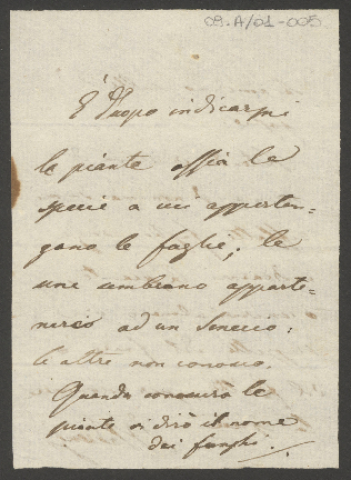 09.A/01-005
È d'uopo indicarmi
le piante ossia le
specie a cui apparten-
gano le foglie; le
une sembrano apparte-
nersi ad un Senecio:
le altre non conosco.
Quando conoscerò le
piante vi dirò il nome
dei funghi.